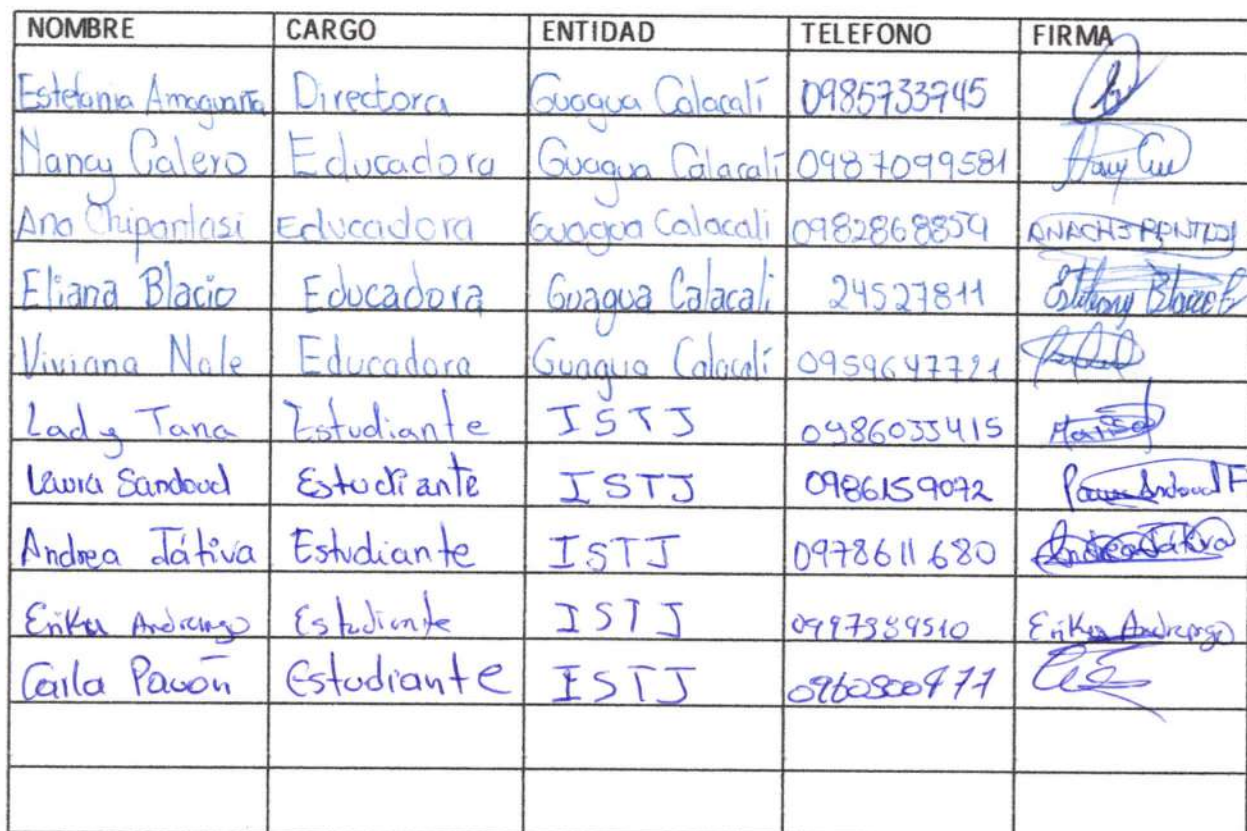 NOMBRE CARGO ENTIDAD TELEFONO FIRMA
Estefania Amaguaña Directora Guagua Calacalí 0985733745
Nancy Calero Educadora Guagua Calacalí 0987099581
Ana Chipantasi Educadora Guagua Calacali 0982868859
Eliana Blacio Educadora Guagua Calacali 24527811
Viviana Nale Educadora Guagua Calacalí 0959647721
Lady Tana Estudiante ISTJ
Sandoval Estudiante ISTJ 0986159072
Andrea Játiva Estudiante ISTJ 0978611680 Andrea Játiva
Erika Andrango Estudiante ISTJ Erika Andrango
Carla Pavón Estudiante ISTJ